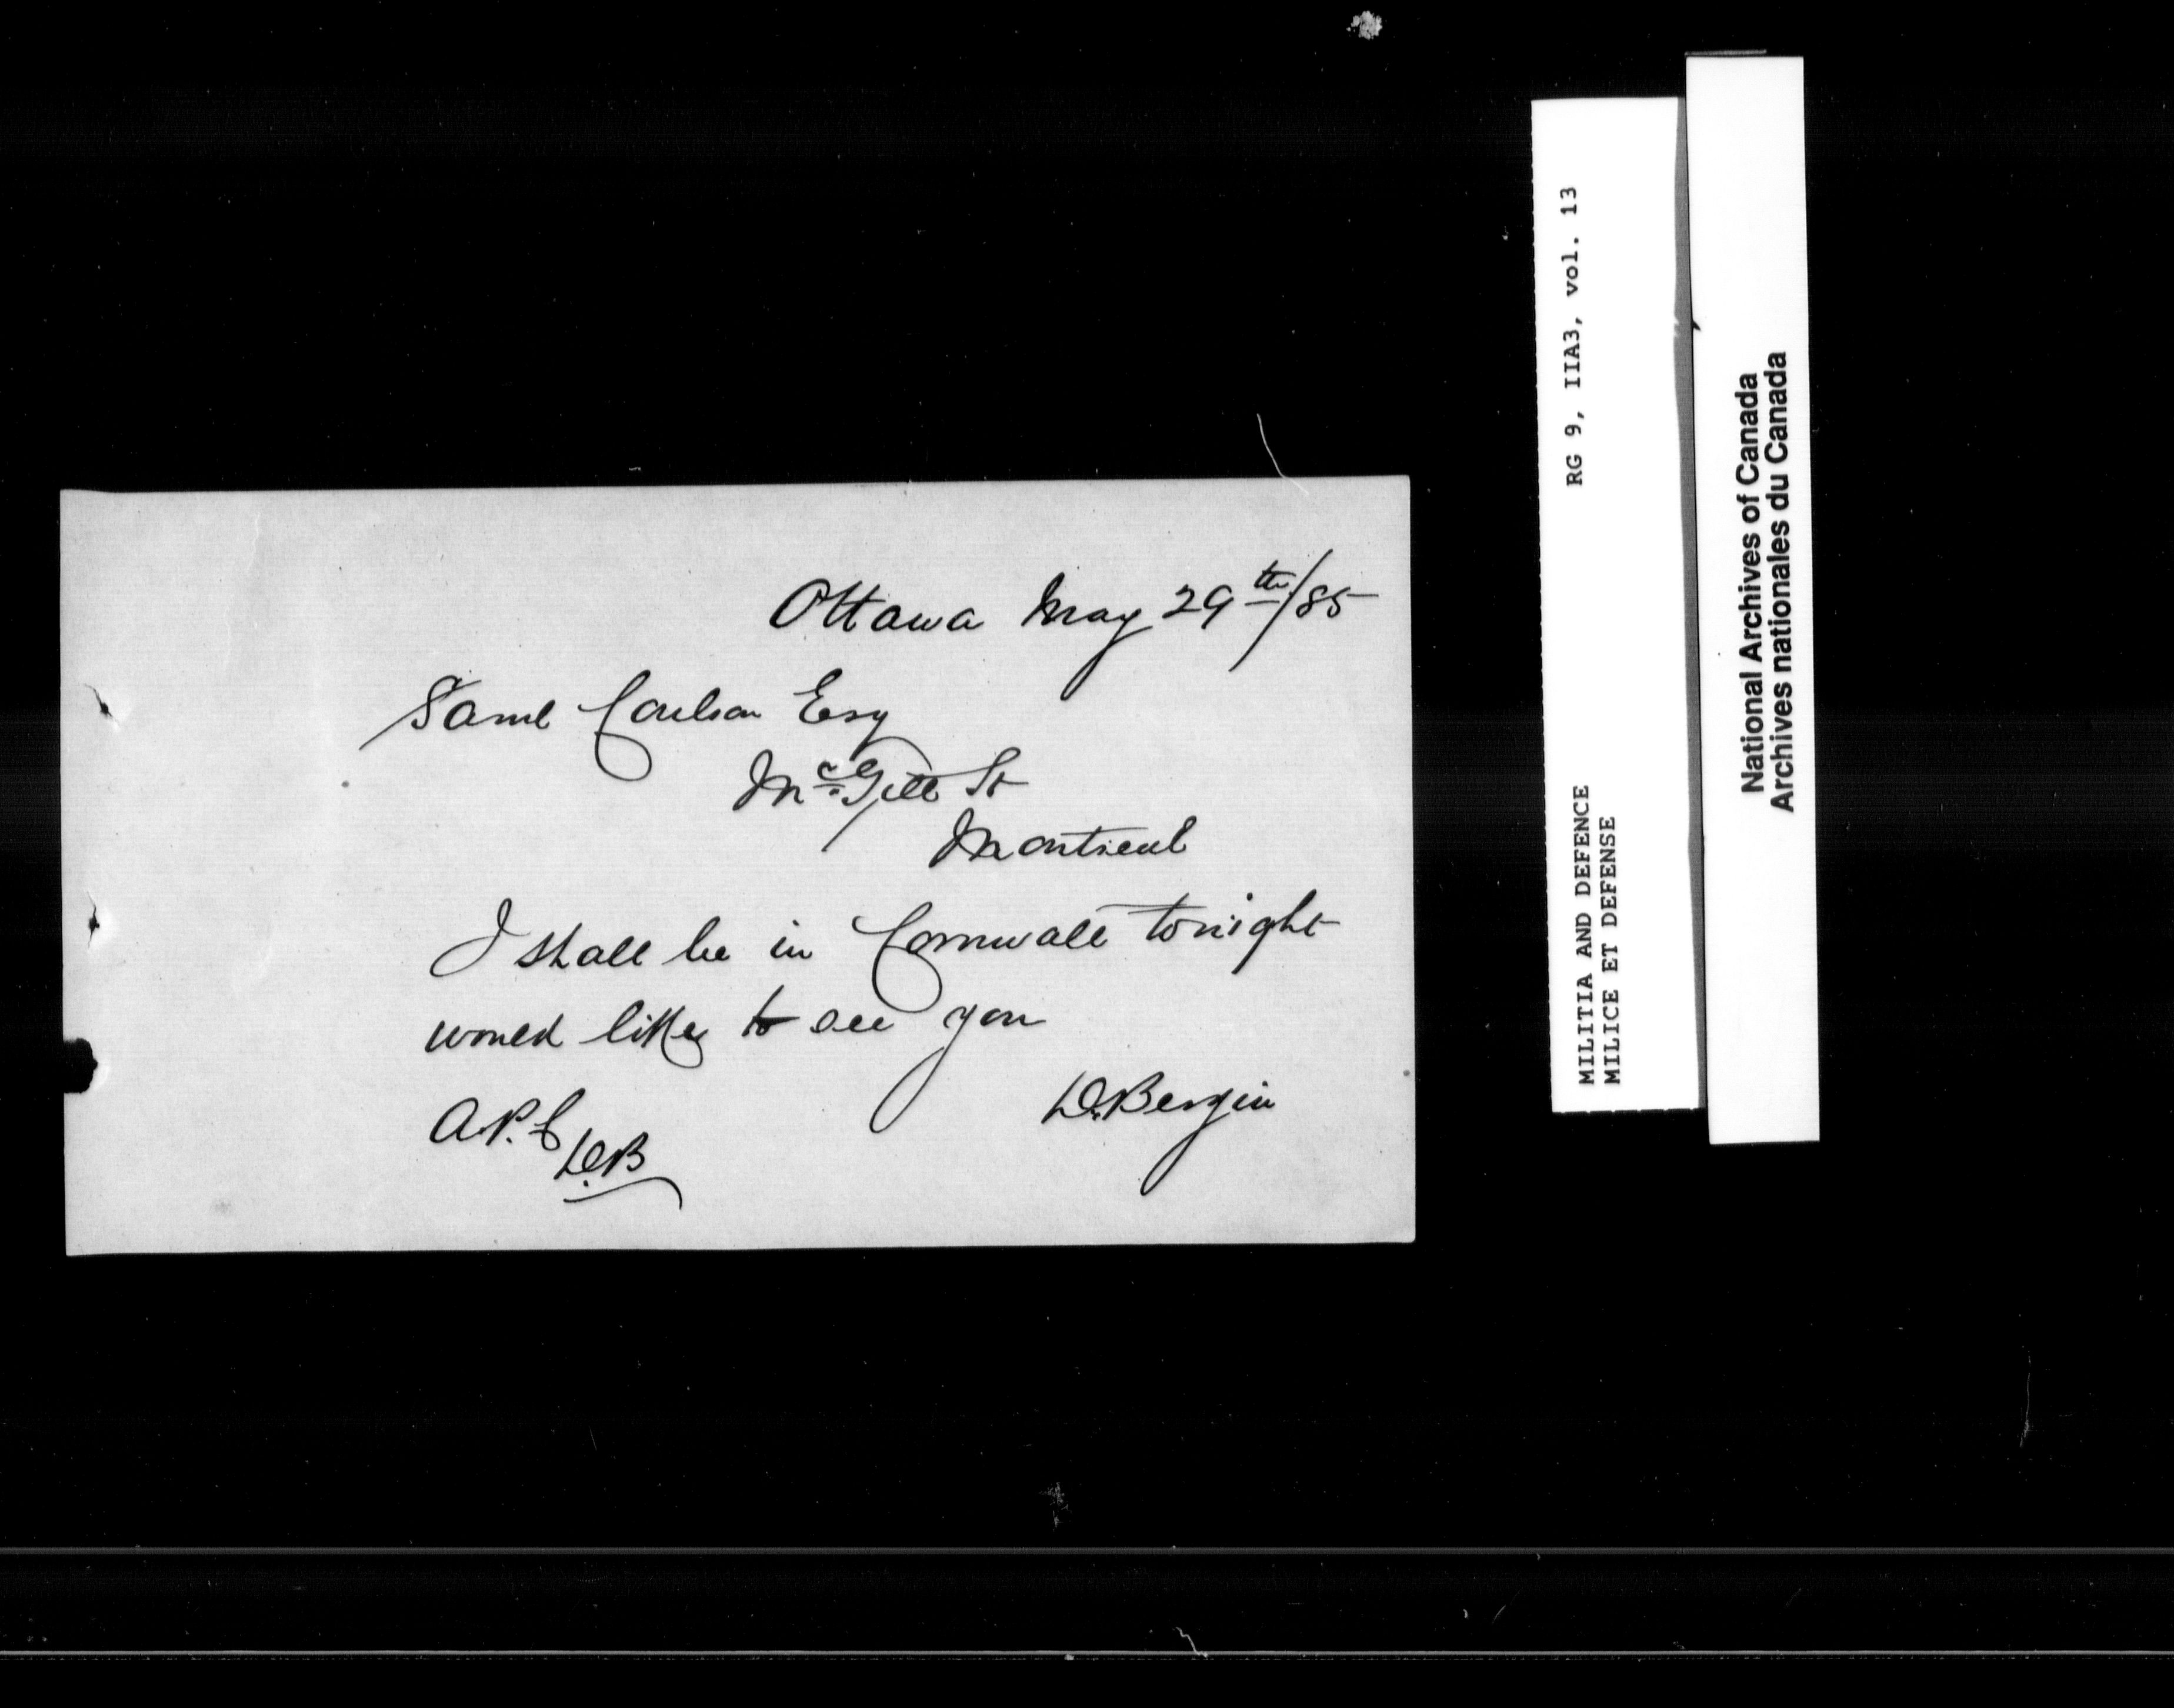 Ottawa May 29th/85
Saml Coulson Esq
McGill St
Montreal
I shall be in Cornwall tonight
would like to see you
D. Bergin
A.P.C
D.B
RG 9, IIA3, vol. 13
MILITIA AND DEFENCE
MILICE ET DEFENSE
National Archives of Canada
Archives nationales du Canada